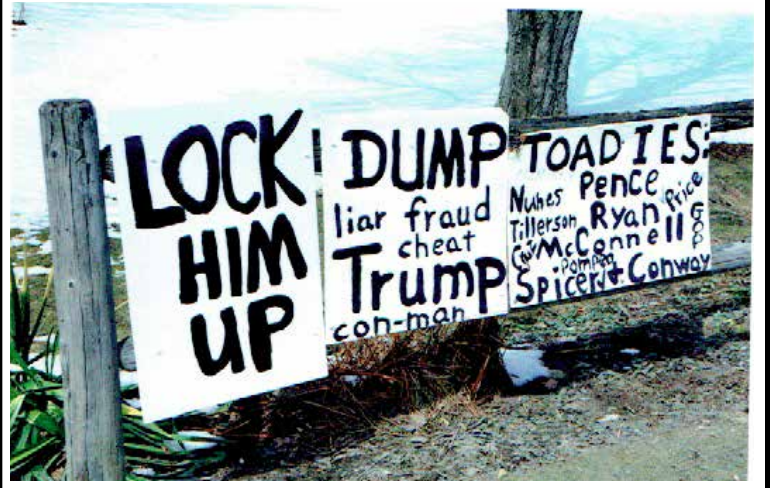 LOCK
HIM
UP
DUMP
liar fraud
cheat
Trump
con-man
TOADIES:
Nunes Pence Price
Tillerson Ryan
McConnell GOP
Spicer & Conway